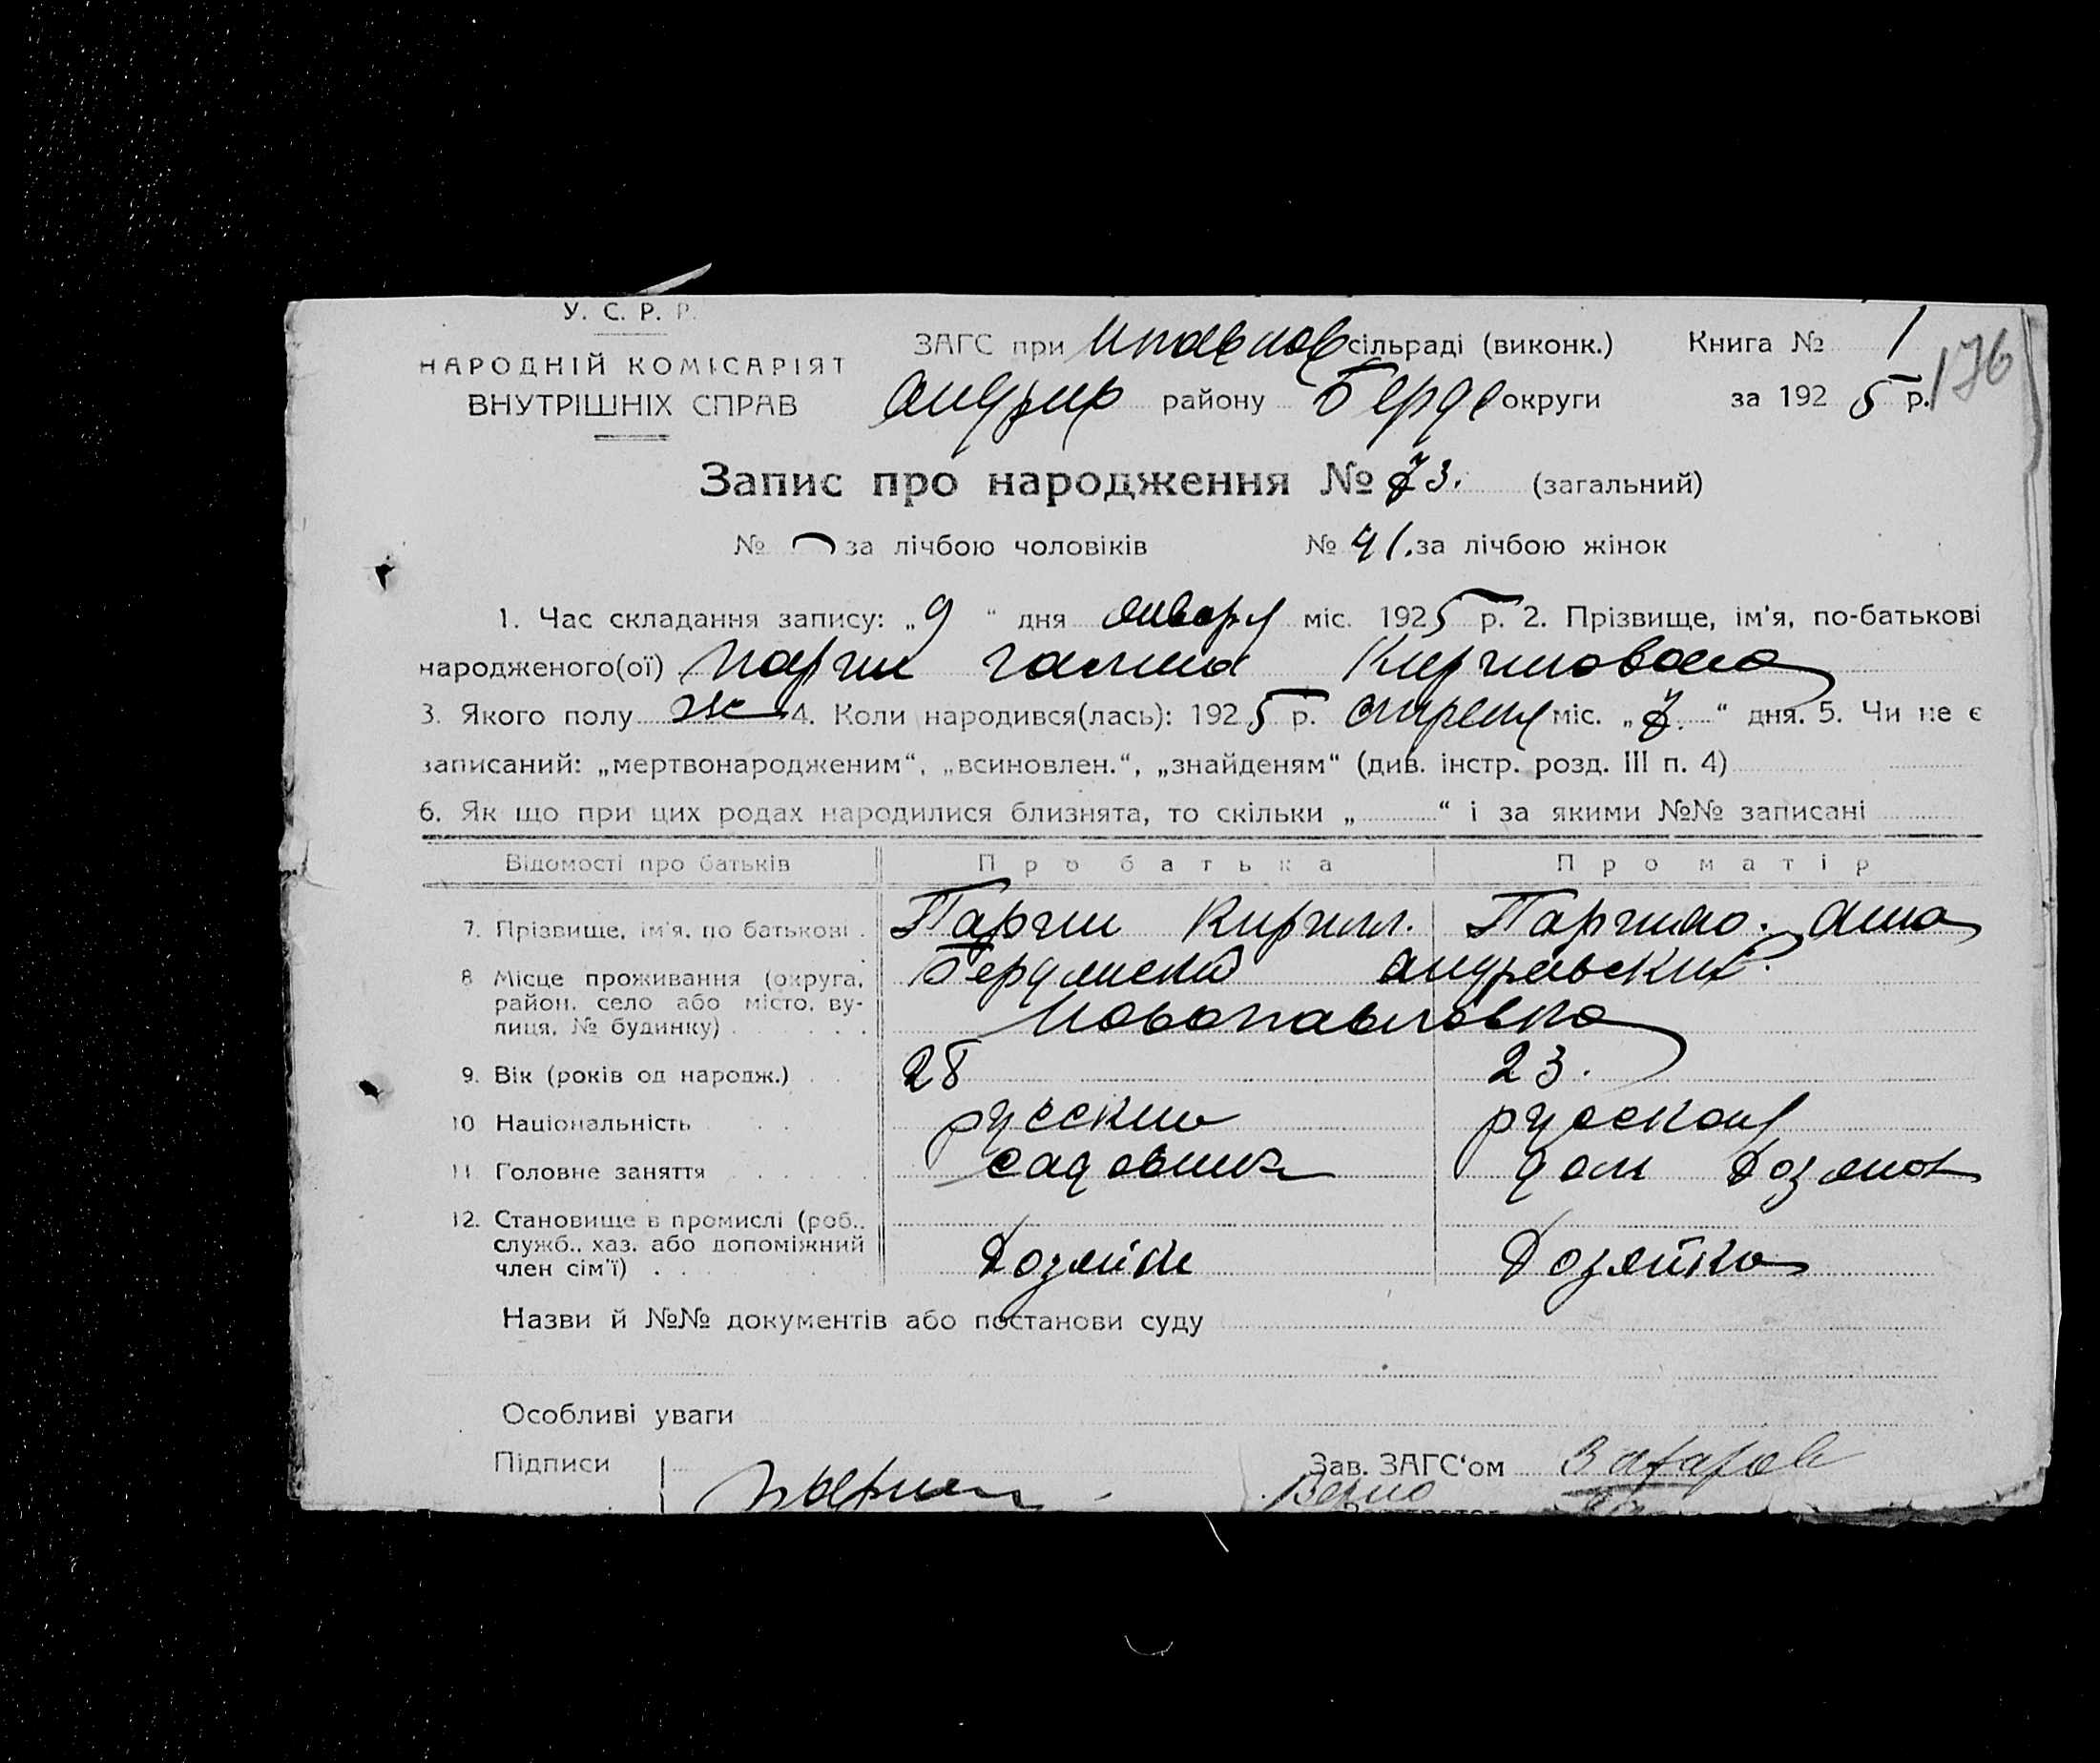 У. С. Р. Р.
НАРОДНІЙ КОМІСАРІЯТ
ВНУТРІШНІХ СПРАВ
ЗАГС при сільраді (виконк.) Книга № 1
району Берд округи за 1925 р. 176
Запис про народження № 73. (загальний)
№ за лічбою чоловіків № 41. за лічбою жінок
1. Час складання запису: „9“ дня міс. 1925 р. 2. Прізвище, ім'я, по-батькові
народженого(ої) Паргин Галина Кирилловна
3. Якого полу ж 4. Коли народився(лась): 1925 р. апреля міс. „7.“ дня. 5. Чи не є
записаний: „мертвонародженим“, „всиновлен.“, „знайденям“ (див. інстр. розд. III п. 4)
6. Як що при цих родах народилися близнята, то скільки „ “ і за якими №№ записані
Відомості про батьків Про батька Про матір
7. Прізвище, ім'я, по батькові Паргин Кирилл. Паргина. Анна
8 Місце проживання (округа, район, село або місто, ву-
лиця, № будинку) Бердянский Андреевский
Новопавловка
9. Вік (років од народж.) 28 23.
10 Національність русский русская
11. Головне заняття садовник дом хозяйка
12. Становище в промислі (роб.,
служб., хаз. або допоміжний
член сім'ї) Хозяин Хозяйка
Назви й №№ документів або постанови суду
Особливі уваги
Підписи Паргин Зав. ЗАГС'ом
Верно